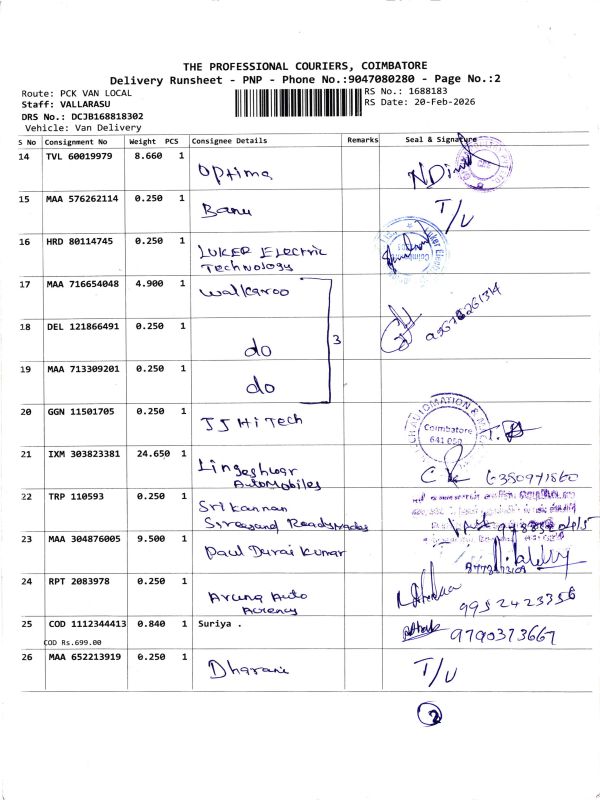 THE PROFESSIONAL COURIERS, COIMBATORE
Delivery Runsheet - PNP - Phone No.:9047080280 - Page No.:2
Route: PCK VAN LOCAL
Staff: VALLARASU
DRS No.: DCJB168818302
Vehicle: Van Delivery
RS No.: 1688183
RS Date: 20-Feb-2026
S No Consignment No Weight PCS Consignee Details Remarks Seal & Signature
14 TVL 60019979 8.660 1 Optima
15 MAA 576262114 0.250 1 Banu T/U
16 HRD 80114745 0.250 1 LUKER Electric
Technology
17 MAA 716654048 4.900 1 Walkaroo
18 DEL 121866491 0.250 1 do 3
19 MAA 713309201 0.250 1 do
20 GGN 11501705 0.250 1 JJ Hi Tech Coimbatore
21 IXM 303823381 24.650 1 Lingeshwar
AutoMobiles
22 TRP 110593 0.250 1 Sri Kannan
23 MAA 304876005 9.500 1 Paul Durai Kumar
24 RPT 2083978 0.250 1 Aruna Auto
Agency 9952423356
25 COD 1112344413 0.840 1 Suriya . 9790373667
COD Rs.699.00
26 MAA 652213919 0.250 1 Dharani T/U
2